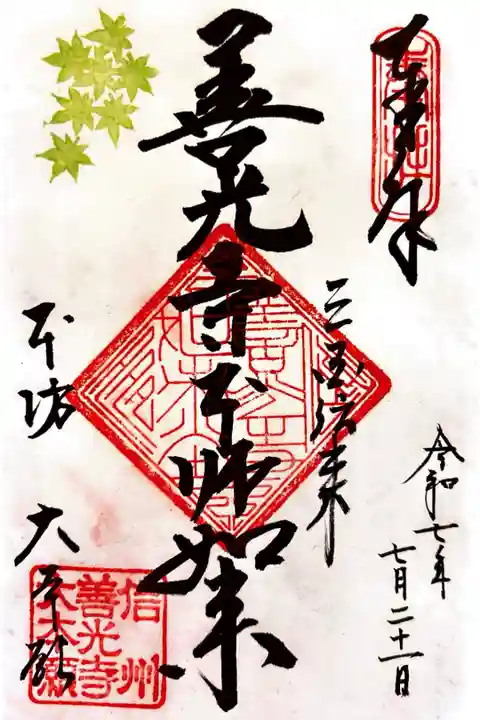 奉拝
令和七年
七月二十一日
三国伝来
善光寺本師如来
本坊 大本願
信州
善光寺
大本願